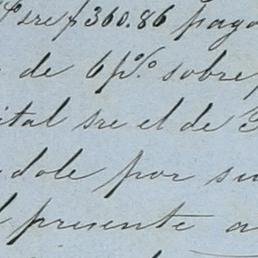 sre $360.86 pago
de 6 p% sobre
ital sre el de
dole por su
presente a